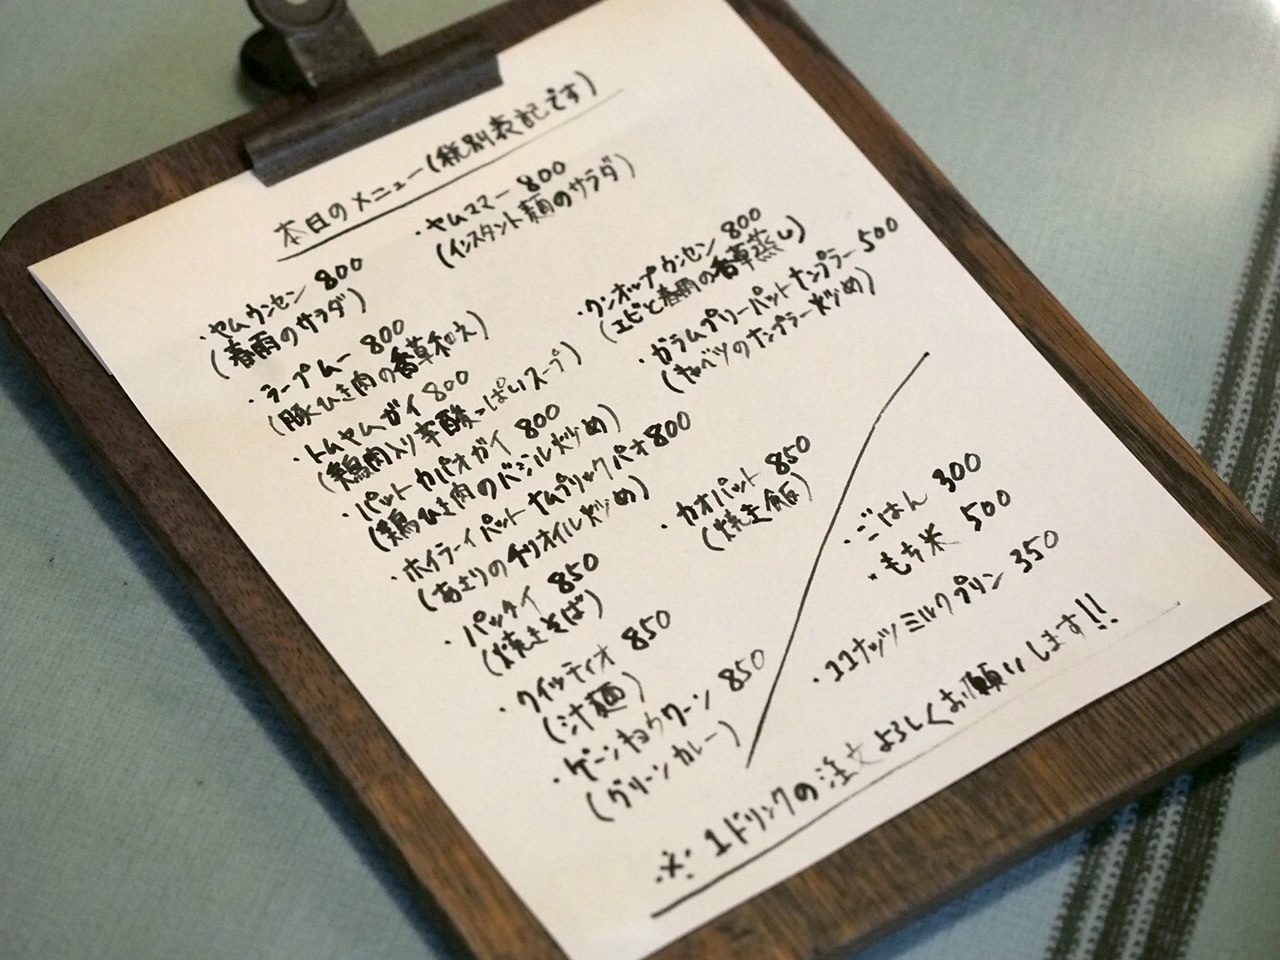 本日のメニュー(税別表記です)
・ヤムウンセン 800
(春雨のサラダ)
・ラープムー 800
(豚ひき肉の香草和え)
・トムヤムガイ 800
(鶏肉入り辛酸っぱいスープ)
・パットカパオガイ 800
(鶏ひき肉のバジル炒め)
・ホイラーイパットナムプリックパオ 800
(あさりのチリオイル炒め)
・パッタイ 850
(焼きそば)
・クイッティオ 850
(汁麺)
・ゲーンキョウワーン 850
(グリーンカレー)
・ヤムママー 800
(インスタント麺のサラダ)
・クンオップウンセン 800
(エビと春雨の香草蒸し)
・ガラムプリーパットナンプラー 500
(キャベツのナンプラー炒め)
・カオパット 850
(焼き飯)
・ごはん 300
・もち米 500
・ココナッツミルクプリン 350
※1ドリンクの注文よろしくお願いします!!